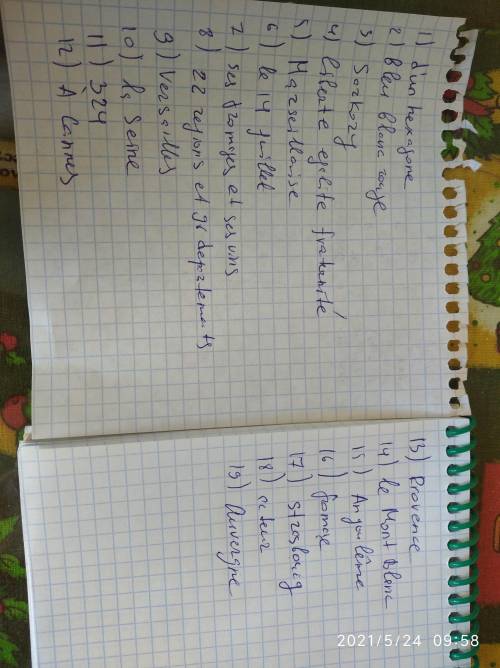 1) d'un hexagone
2) Bleu blanc rouge
3) Sarkozy
4) liberte egalite fraternité
5) Marseillaise
6) le 14 juillet
7) ses fromages et ses vins
8) 22 regions et 96 departements
9) Versailles
10) la Seine
11) 324
12) À Cannes
13) Provence
14) le Mont Blanc
15) Angoulême
16) fromage
17) Strasbourg
18)
19) Auvergne
2021/5/24 09:58